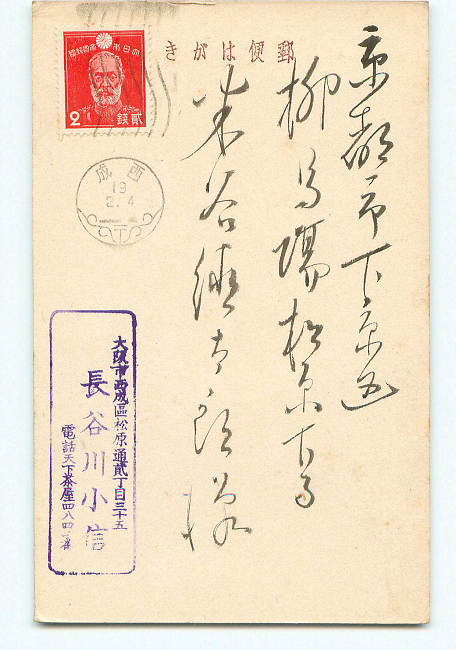 きがは便郵
京都市下京区
柳馬場松原下る
米谷徳太郎様
大日本帝國郵便
2 銭貳
西成
19
2.4
大阪市西成區松原通貳丁目三十五
長谷川小信
電話天下茶屋四八四二番